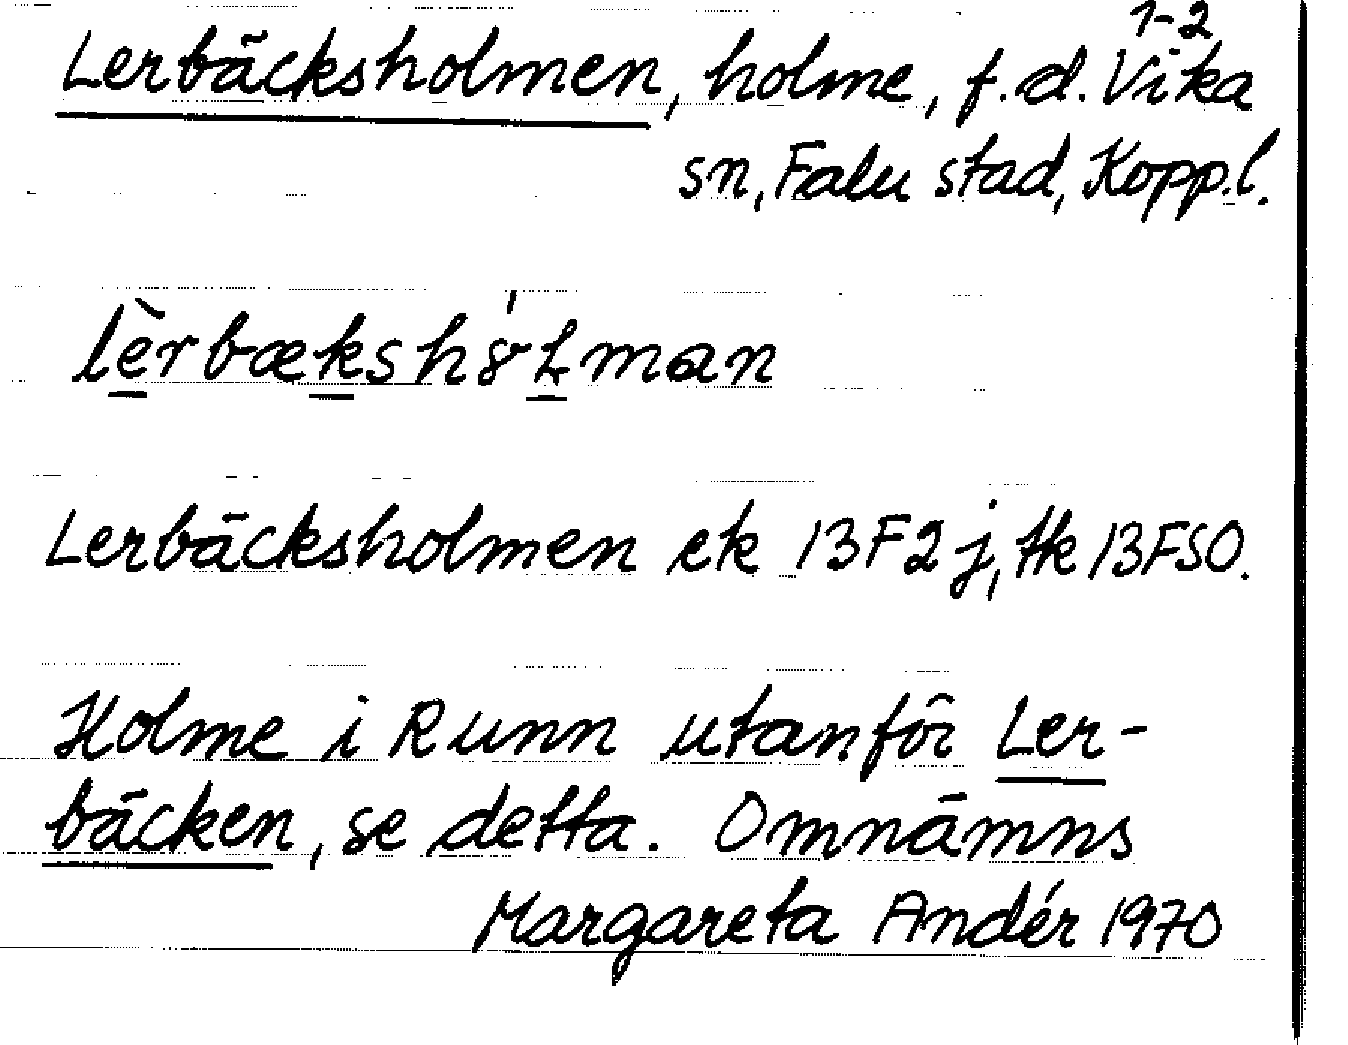 1-2
Lerbäcksholmen, holme, f.d. Vika
sn, Falu stad, Kopp.l.
Lerbäcksholmen ek 13F2j, tk 13FSO.
Holme i Runn utanför Ler-
bäcken, se detta. Omnämns
Margareta Andér 1970